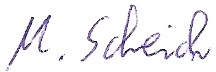 M. Scheich